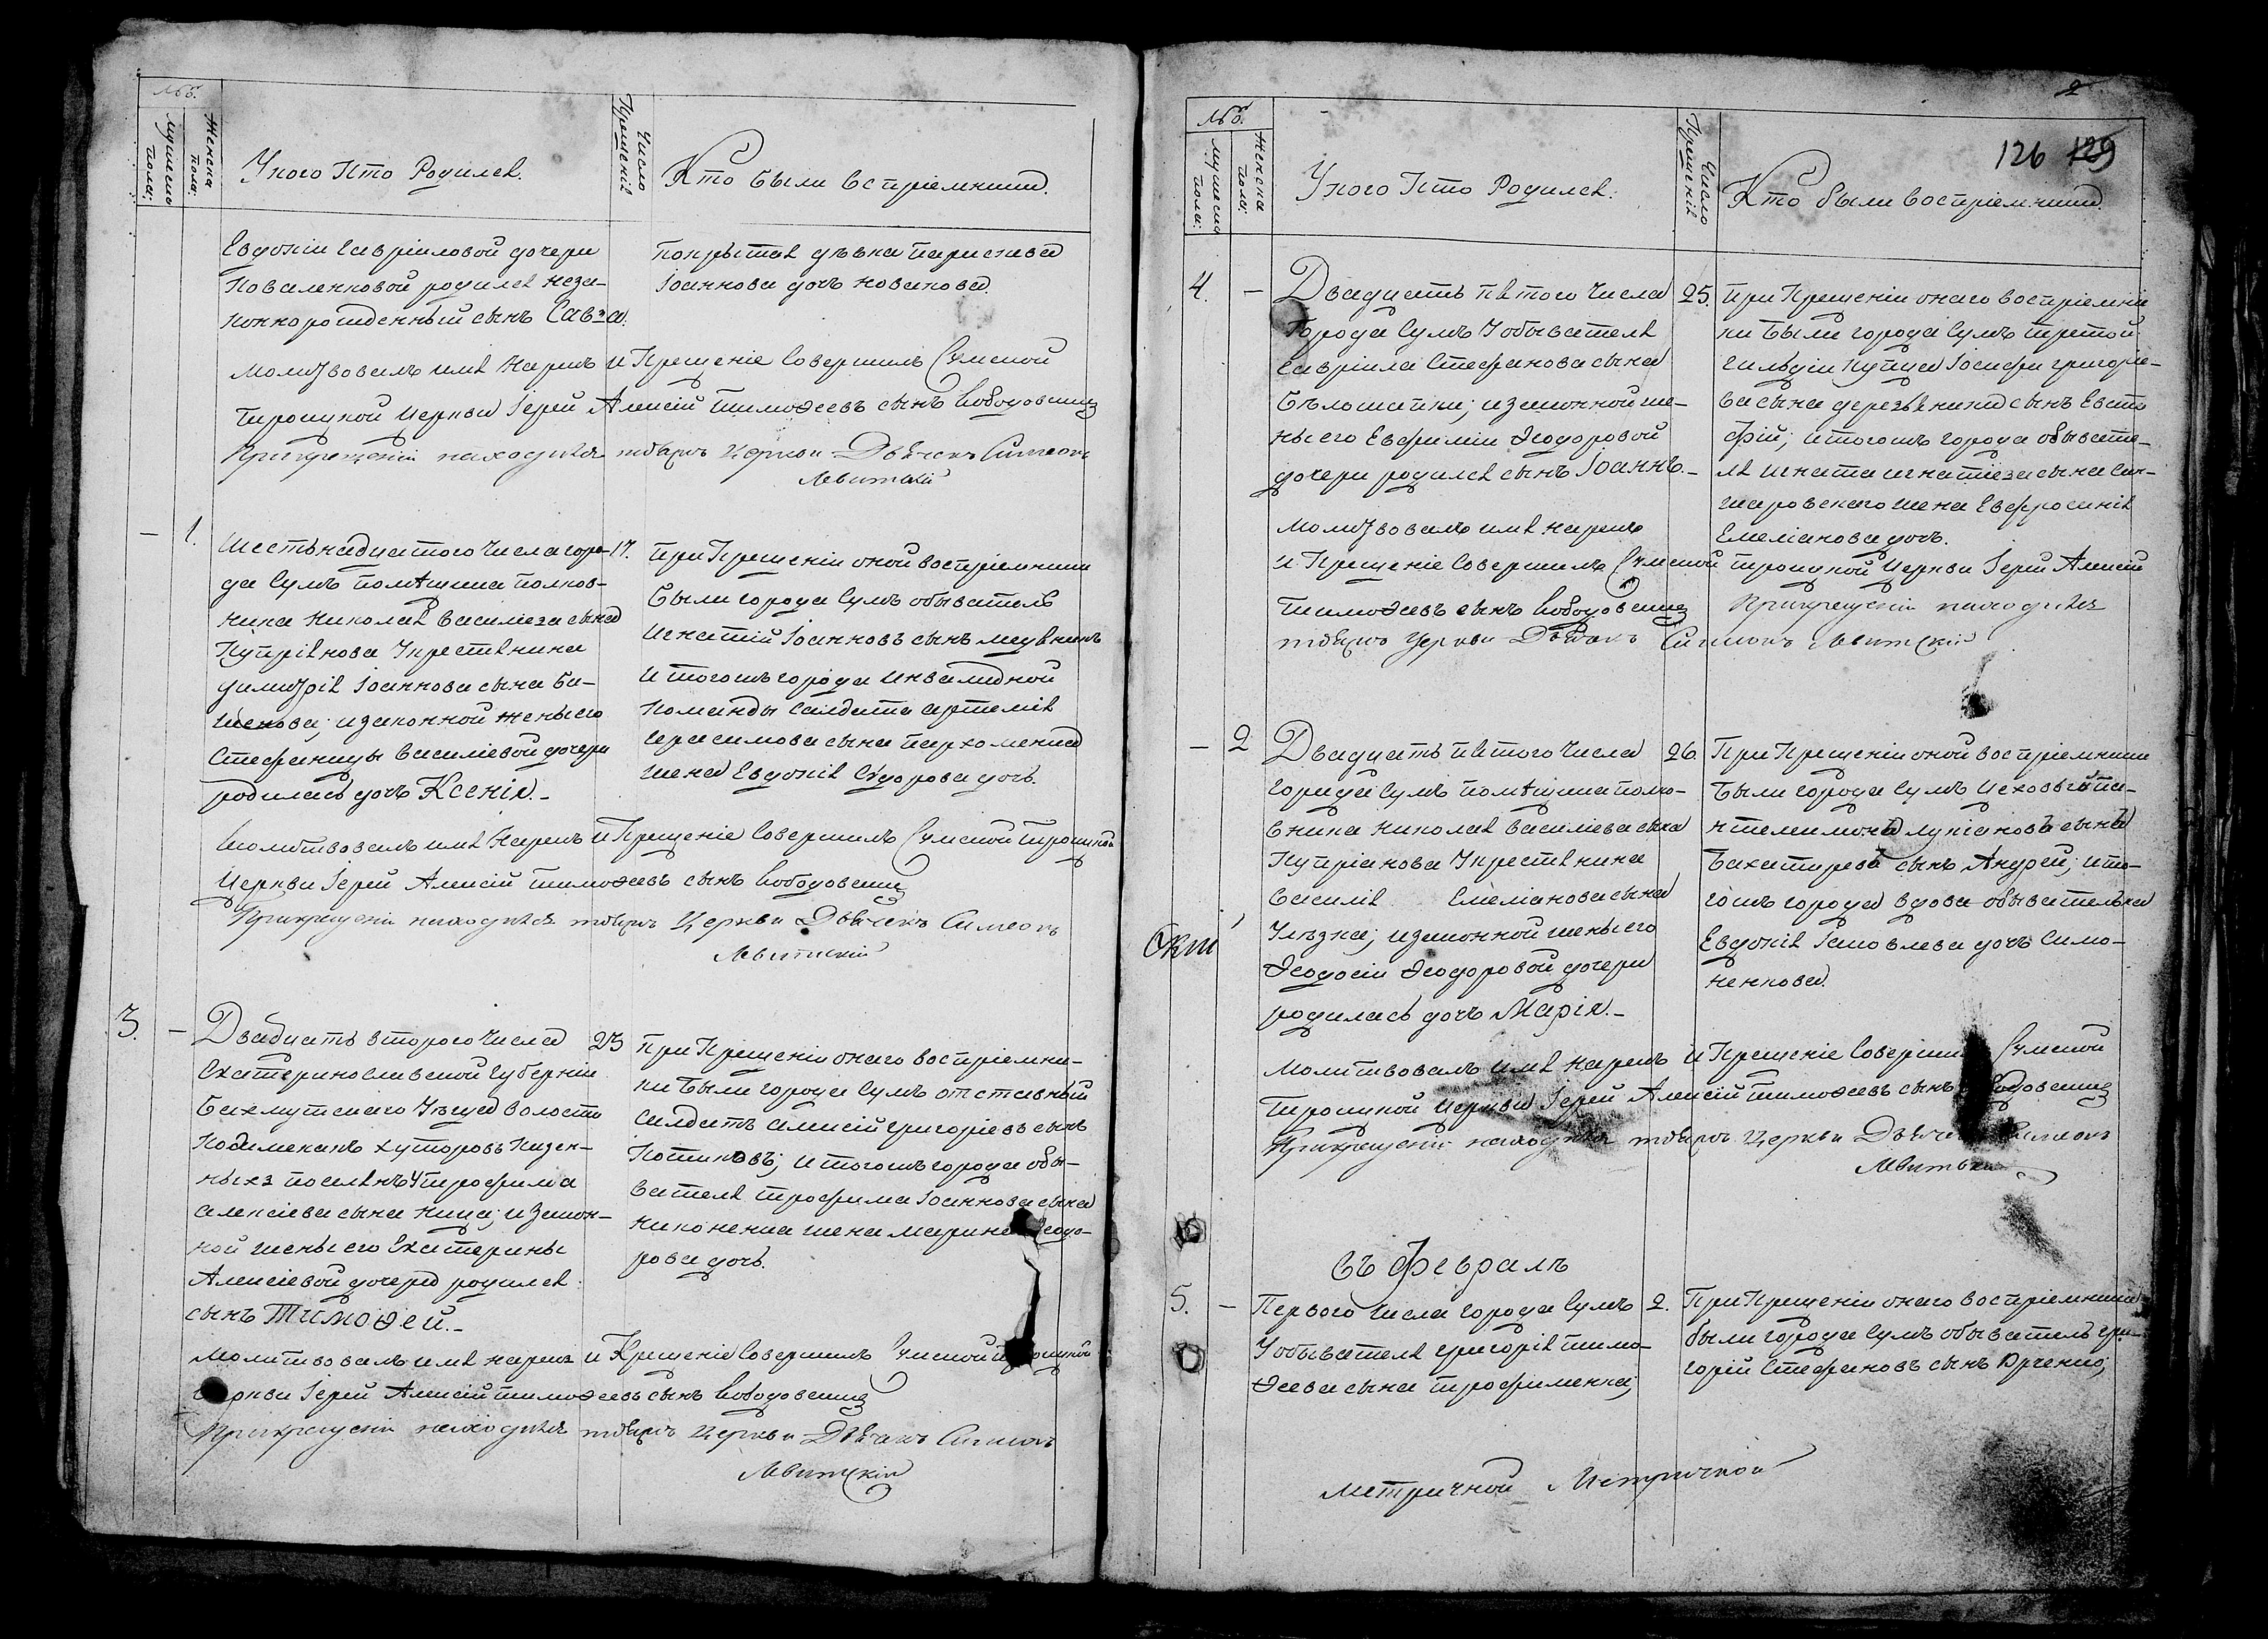 № б.
Мужеска
пола:
Женска
пола:
У кого Кто Родился.
Число
Крещенія
Кто были восприемники.
Евдокіи Гавріиловой дочери
Коваленковой родился неза-
коннорожденный сынъ Савва.
покрытая дѣвка параскева
Іоаннова дочь новакова.
Молитвовалъ имя Нарекъ и Крещеніе Совершилъ Сумской
троицкой Церкви Іерей Алексій тимоѳеевъ сынъ
При крещеніи находился тояжъ Церкви Дьячекъ Симеонъ
Левитскій
— 1. Шестьнадцатого Числа горо-
да Сумъ помѣщика полков-
ника Николая Василіева сына
Купріянова У крестянина
димитрія Іоаннова сына Ба-
женова; и законной жены его
Стефаниды Василіевой дочери
родилась дочь Ксенія.-
17. при Крещеніи оной восприемники
Были города Сумъ обыватель
Игнатій Іоанновъ сынъ медяникъ
и того жъ города инвалидной
команды Салдата артемія
герасимова сына пархоменка
жена Евдокія Сидорова дочь.
Молитвовалъ имя Нарекъ и Крещеніе Совершилъ Сумской троицкой
Церкви Іерей Алексій тимоѳеевъ сынъ
При крещеніи находился тояжъ Церкви Дьячекъ Симеонъ
Левитскій
3. — Двадцать второго Числа
Екатеринославской Губерніи
Бахмутскаго Уѣзда волости
хуторовъ Казен-
ныхъ поселянъ У трофима
алексіева сына Кица; и закон-
ной жены его Екатерины
Алексіевой дочери родился
сынъ Тимоѳей.-
23 при Крещеніи онаго восприемни-
ки Были города Сумъ отставный
салдатъ алексій григоріевъ сынъ
и того жъ города обы-
вателя трофима Іоаннова сына
Никоненка жена марина Ѳеодо-
рова дочь.
Молитвовалъ имя нарекъ и Крещеніе Совершилъ Сумской троицкой
Церкви Іерей Алексій тимоѳеевъ сынъ
При крещеніи находился тояжъ Церкви Дьячекъ Симеонъ
Левитскій
2
126 129
№ б.
Мужеска
пола:
Женска
пола:
У кого Кто Родился:
Число
Крещенія
Кто были восприемники.
4. — Двадцать пятого Числа
Города Сумъ У обывателя
Гавріила Стефанова сына
Бѣлошапки; и законной же-
ны его Евфиміи Ѳеодоровой
дочери родился сынъ Іоаннъ.-
25. при Крещеніи онаго восприемни
ки были города Сумъ третой
гильдіи купца Іосифа григорі-
ева сына сынъ Евста
фій; и того жъ города обывате-
ля игната игнатіева сына
жена Евфросинія
Емеліанова дочь.
Молитвовалъ имя нарекъ
и Крещеніе Совершилъ Сумской троицкой Церкви Іерей Алексій
тимоѳеевъ сынъ При крещеніи находился
тояжъ Церкви Дьячекъ Симеонъ Левитскій
— 2 Двадцать пятого Числа
города Сумъ помѣщика полко-
вника Николая Василіева сына
Купріанова У крестянина
Василія Емеліанова сына
и законной жены его
Ѳеодосіи Ѳеодоровой дочери
родилась дочь Марія.-
26. При Крещеніи оной восприемники
были города Сумъ Цеховаго па-
нтелимона лукіановъ сына
сынъ Андрей; и то-
гожъ города вдова обывателька
Евдокія Іаковлева дочь Симо-
ненкова.
Молитвовалъ имя нарекъ и Крещеніе Совершилъ Сумской
троицкой Церкви Іерей Алексій тимоѳеевъ сынъ
При крещеніи находился тояжъ Церкви Дьячекъ Симеонъ
Левитскій
Въ Февралѣ
5. — Первого Числа города Сумъ
У обывателя григорія тимо-
ѳеева сына трофименка;
2. При Крещеніи онаго восприемники
были города Сумъ обыватель гри-
горій Стефановъ сынъ Юрченко;
метричной